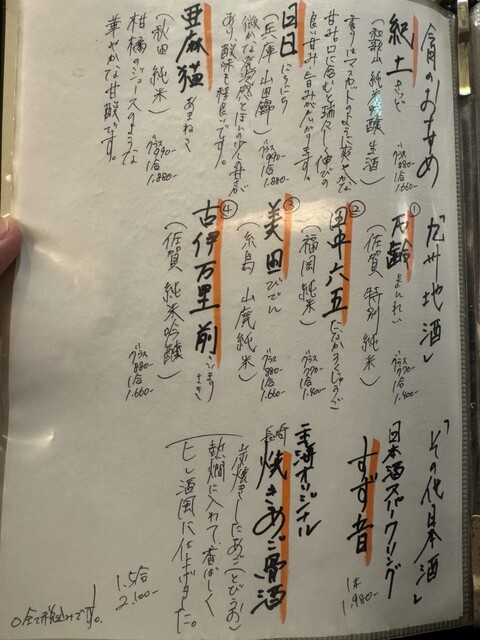 今月のおすすめ
紀土 きっど
(和歌山 純米吟醸 生酒)
香りはマスカットのように爽やかな
甘み口に含むと瑞々しく伸びの
良い甘み、旨みが広がります。
グラス 880-
1合 1.660-
日日 にちにち
(兵庫 山田錦)
微かな発泡感とほんの少しの甘さが
あり、酸味も程良いです。
グラス 990-
1合 1.880-
亜麻猫 あまねこ
(秋田 純米)
柑橘のジュースのような
華やかな甘酸です。
グラス 990-
1合 1.880-
「九州地酒」
① 万齢 まんれい
(佐賀 特別純米)
グラス 770-
1合 1.400-
② 田中六五 たなかろくじゅうご
(福岡 純米)
グラス 770-
1合 1.400-
③ 美田 びでん
(糸島 山廃純米)
グラス 880-
1合 1.660-
④ 古伊万里 前 こいまり さき
(佐賀 純米吟醸)
グラス 880-
1合 1.660-
「その他日本酒」
日本酒スパークリング
すず音
1本 1.980-
オリジナル
長崎 焼きあご骨酒
炭焼きしたあご(とびうお)
熱燗に入れて、香ばしく
ヒレ酒風に仕上げました。
1.5合
2.100-
○全て税込みです。